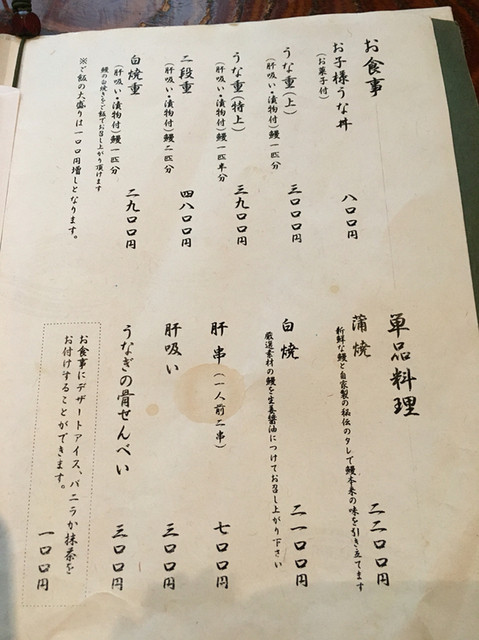 お食事
お子様うな丼 八〇〇円
(お菓子付)
うな重(上) 三〇〇〇円
(肝吸い・漬物付)鰻一匹分
うな重(特上) 三九〇〇円
(肝吸い・漬物付)鰻一匹半分
二段重 四八〇〇円
(肝吸い・漬物付)鰻二匹分
白焼重 二九〇〇円
(肝吸い・漬物付)鰻一匹分
鰻の白焼きをご飯でお召し上がり頂けます
※ご飯の大盛りは一〇〇円増しとなります。
単品料理
蒲焼 二二〇〇円
新鮮な鰻と自家製の秘伝のタレで鰻本来の味を引き立てます
白焼 二一〇〇円
厳選素材の鰻を生姜醤油につけてお召し上がり下さい
肝串(一人前二串) 七〇〇円
肝吸い 三〇〇円
うなぎの骨せんべい 三〇〇円
お食事にデザートアイス、バニラか抹茶を
お付けすることができます。
一〇〇円